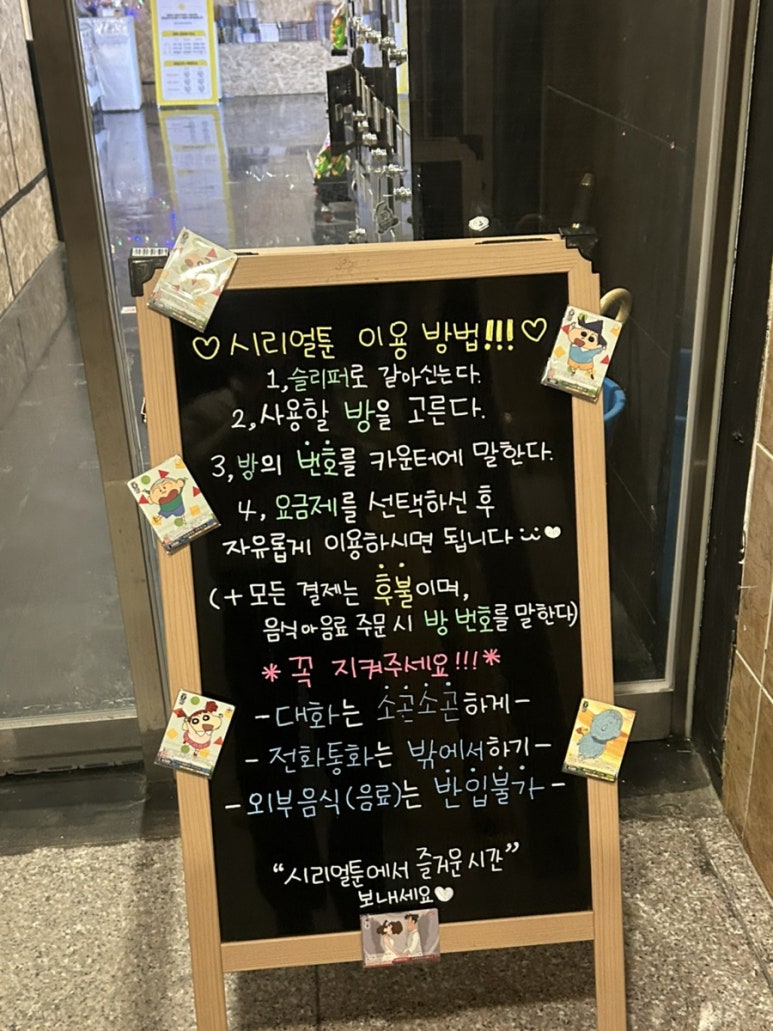 ♡시리얼툰 이용 방법!!!♡
1, 슬리퍼로 갈아신는다.
2, 사용할 방을 고른다.
3, 방의 번호를 카운터에 말한다.
4, 요금제를 선택하신 후
자유롭게 이용하시면 됩니다 ♥
(+모든 결제는 후불이며,
음식 or 음료 주문 시 방 번호를 말한다)
*꼭 지켜주세요!!!*
-대화는 소곤소곤하게-
-전화통화는 밖에서하기-
-외부음식(음료)는 반입불가-
"시리얼툰에서 즐거운 시간"
보내세요♥